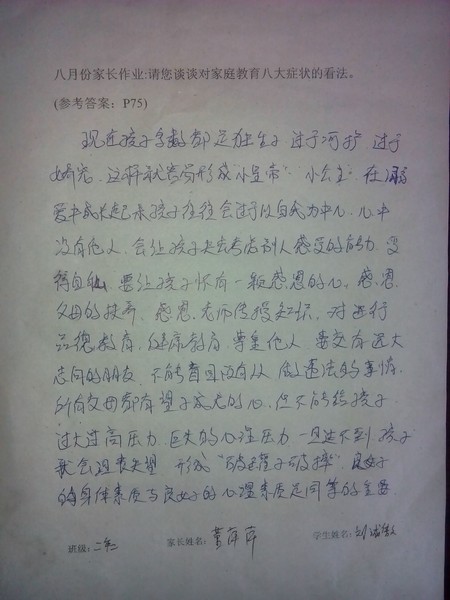 八月份家长作业:请您谈谈对家庭教育八大症状的看法。
(参考答案：P75)
现在孩子多数都是独生子 过于呵护 过于
娇宠 这样就容易形成“小皇帝” 小公主 在溺
爱中成长起来孩子往往会过于以自我为中心 心中
没有他人 会让孩子失去考虑别人感受的能力 变
得自私 要让孩子怀有一颗感恩的心 感恩
父母的扶养 感恩老师传授知识 对进行
品德教育 健康教育 尊重他人 要交有远大
志向的朋友 不能盲目 做违法的事情
所有父母都有望子成龙的心 但不能给孩子
过大过高压力 巨大的心理压力 一旦达不到 孩子
就会沮丧失望 形成“破罐子破摔” 良好
的身体素质与良好的心理素质是同等的重要
班级: 二年 家长姓名: 萍萍 学生姓名: 刘